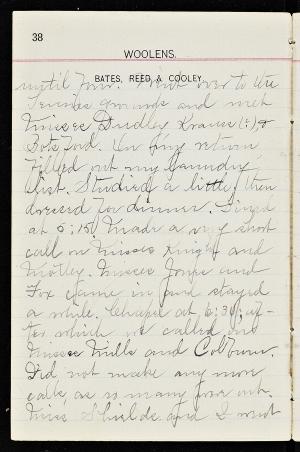 38
WOOLENS.
BATES, REED & COOLEY.
until four. Went over to the
Tennis grounds and met
Misses Dudley Krause (?), &
Botsford. On my return
filled out my laundry
list. Studied a little, then
dressed for dinner. Dined
at 5:15. Made a very short
call on Misses Knight and
Motley. Misses Jones and
Fox came in and stayed
a while. Chapel at 6:30, af-
ter which we called on
Misses Mills and Colburn.
Did not make any more
calls, as so many were out.
Miss Shields and I met